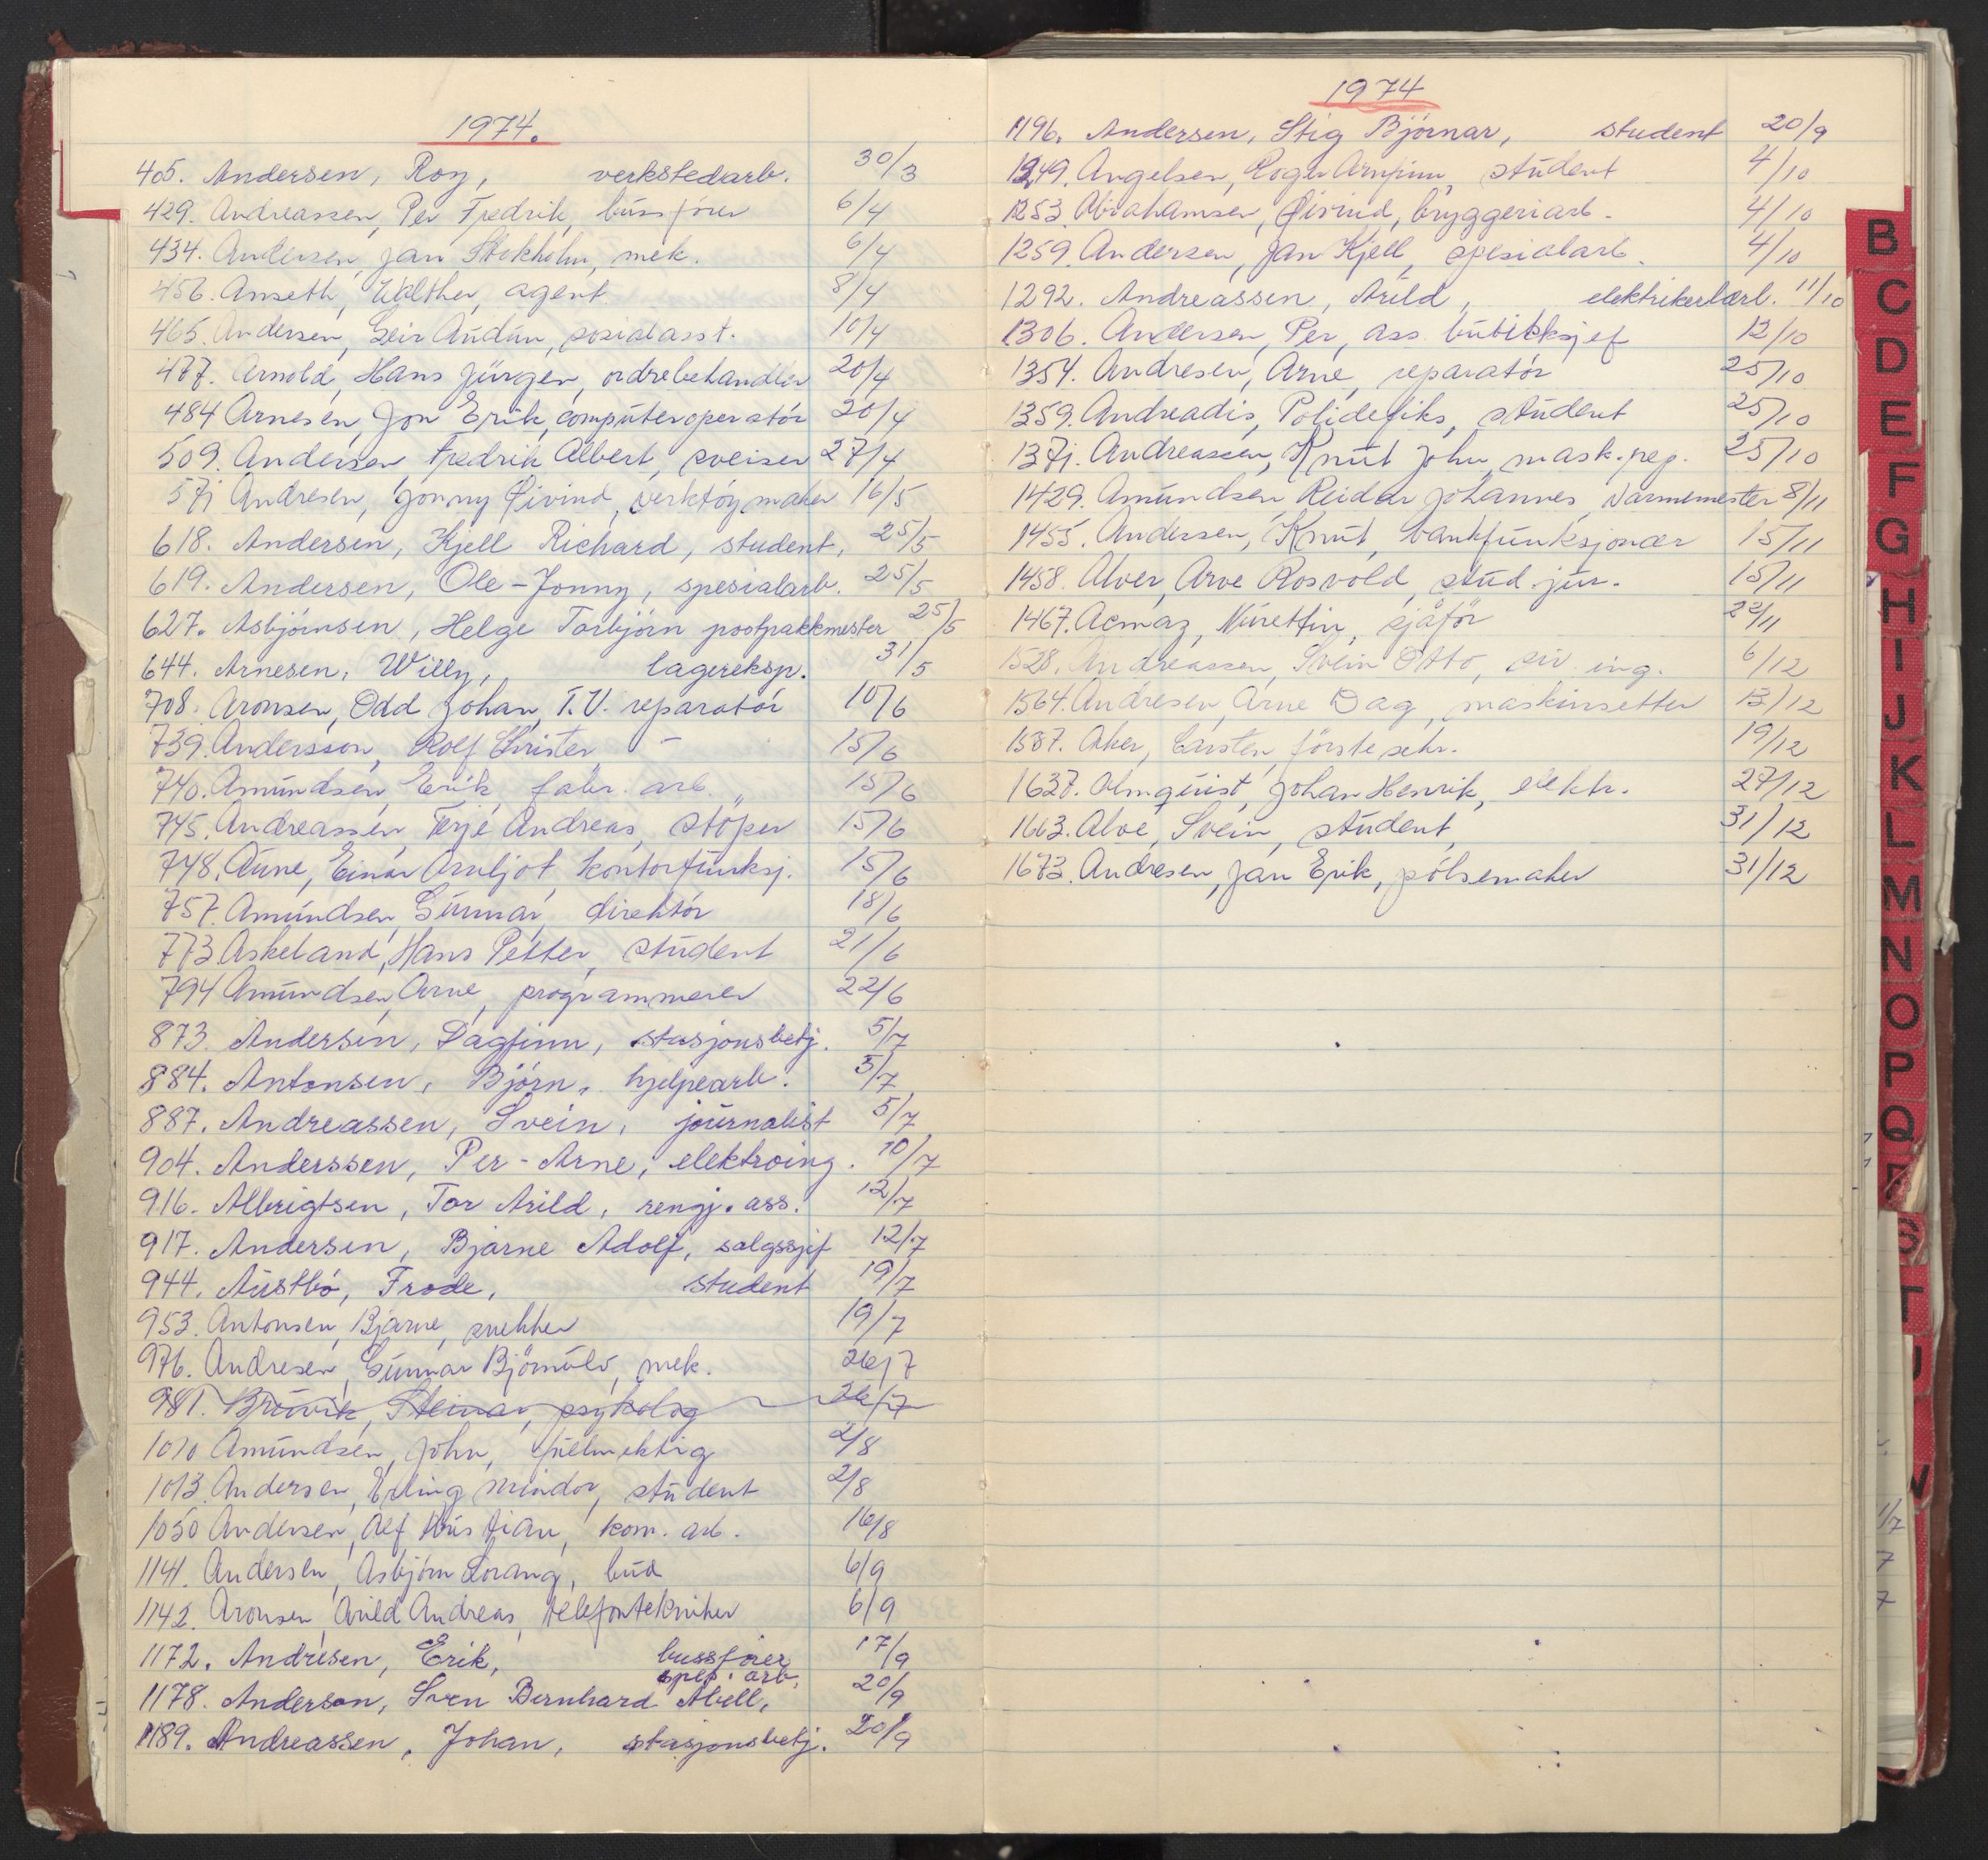 1974.
405. Andersen, Roy, verkstedarb. 30/3
429. Andreassen, Per Fredrik, bussfører 6/4
434. Andersen, Jan Stokholm, mek. 6/4
456. Anseth, Walther, agent 8/4
465. Andersen, Geir Audun, sosialasst. 10/4
477. Arnold, Hans Jürgen, ordrebehandler 20/4
484 Arnesen, Jon Erik, computeroperatór 20/4
509. Andersen, Fredrik Albert, sveiser 27/4
571 Andresen, Jonny Øivind, verktøymaker 16/5
618. Andersen, Kjell Richard, student, 25/5
619. Andersen, Ole-Jonny, spesialarb. 25/5
627. Asbjórnsen, Helge Torbjórn postpakkmester 25/5
644. Arnesen, Willy, lagereksp. 31/5
708. Aronsen, Odd Johan, T.V. reparatór 10/6
739. Andersson, Rolf Christer - 15/6
740. Amundsen, Erik, fabr. arb. " 15/6
745. Andreassen, Terje Andreas, stóper 15/6
748. Aune, Einar Arnljot, kontorfunksj. 15/6
757. Amundsen, Gunnar, direktór 18/6
773 Askeland, Hans Petter, student 21/6
794 Amundsen, Arne, programmerer 22/6
873. Andersen, Dagfinn, stasjonsbetj. 5/7
884. Antonsen, Bjórn, hjelpearb. 5/7
887. Andreassen, Svein, journalist 5/7
904. Anderssen, Per-Arne, elektroing. 10/7
916. Albrigtsen, Tor Arild, rengj. ass. 12/7
917. Andersen, Bjarne Adolf, salgssjef 12/7
944. Austbó, Frode, student 19/7
953. Antonsen, Bjarne, snekker 19/7
976. Andresen, Gunnar Bjórnulv, mek. 26/7
981. Bruvik, Steinar, psykolog 26/7
1010 Amundsen, John, fullmektig 2/8
1013. Andersen, Erling Mindor, student 2/8
1050 Andersen, Alf Kristian, kom. arb. 16/8
1141. Andersen, Asbjórn Lorang, bud 6/9
1142. Aronsen, Arild Andreas, telefontekniker 6/9
1172. Andresen, Erik, bussfórer 17/9
spes. arb.
1178. Anderson, Sven Bernhard Abell, 20/9
1189. Andreassen, Johan, stasjonsbetj. 20/9
1974
1196. Andersen, Stig Bjórnar, student 20/9
1249. Angelsen, Roger Arnfinn, student 4/10
1253 Abrahamsen, Øivind, bryggeriarb. 4/10
1259. Andersen, Jan Kjell, spesialarb. 4/10
1292. Andreassen, Arild, elektrikerlærl. 11/10
1306. Andersen, Per, ass. butikksjef 12/10
1354. Andresen, Arne, reparatór 25/10
1359. Andreadis, Polidefiks, student 25/10
1371. Andreassen, Knut John, mask.rep. 25/10
1429. Amundsen, Reidar Johannes, varmemester 8/11
1455. Andersen, Knut, bankfunksjonær 15/11
1458. Alver, Arve Rosvold, stud. jur. 15/11
1467. Acmaz, Nurettin, sjåfór 22/11
1528. Andreassen, Svein Otto, siv. ing. 6/12
1564. Andresen, Arne Dag, maskinsetter 13/12
1587. Aker, Carsten, fórste sekr. 19/12
1637. Almquist, Johan Henrik, elektr. 27/12
1663. Alve, Svein, student, 31/12
1673. Andresen, Jan Erik, pólsemaker 31/12
B
C
D
E
F
G
H
I
J
K
L
M
N
O
P
Q
S
T